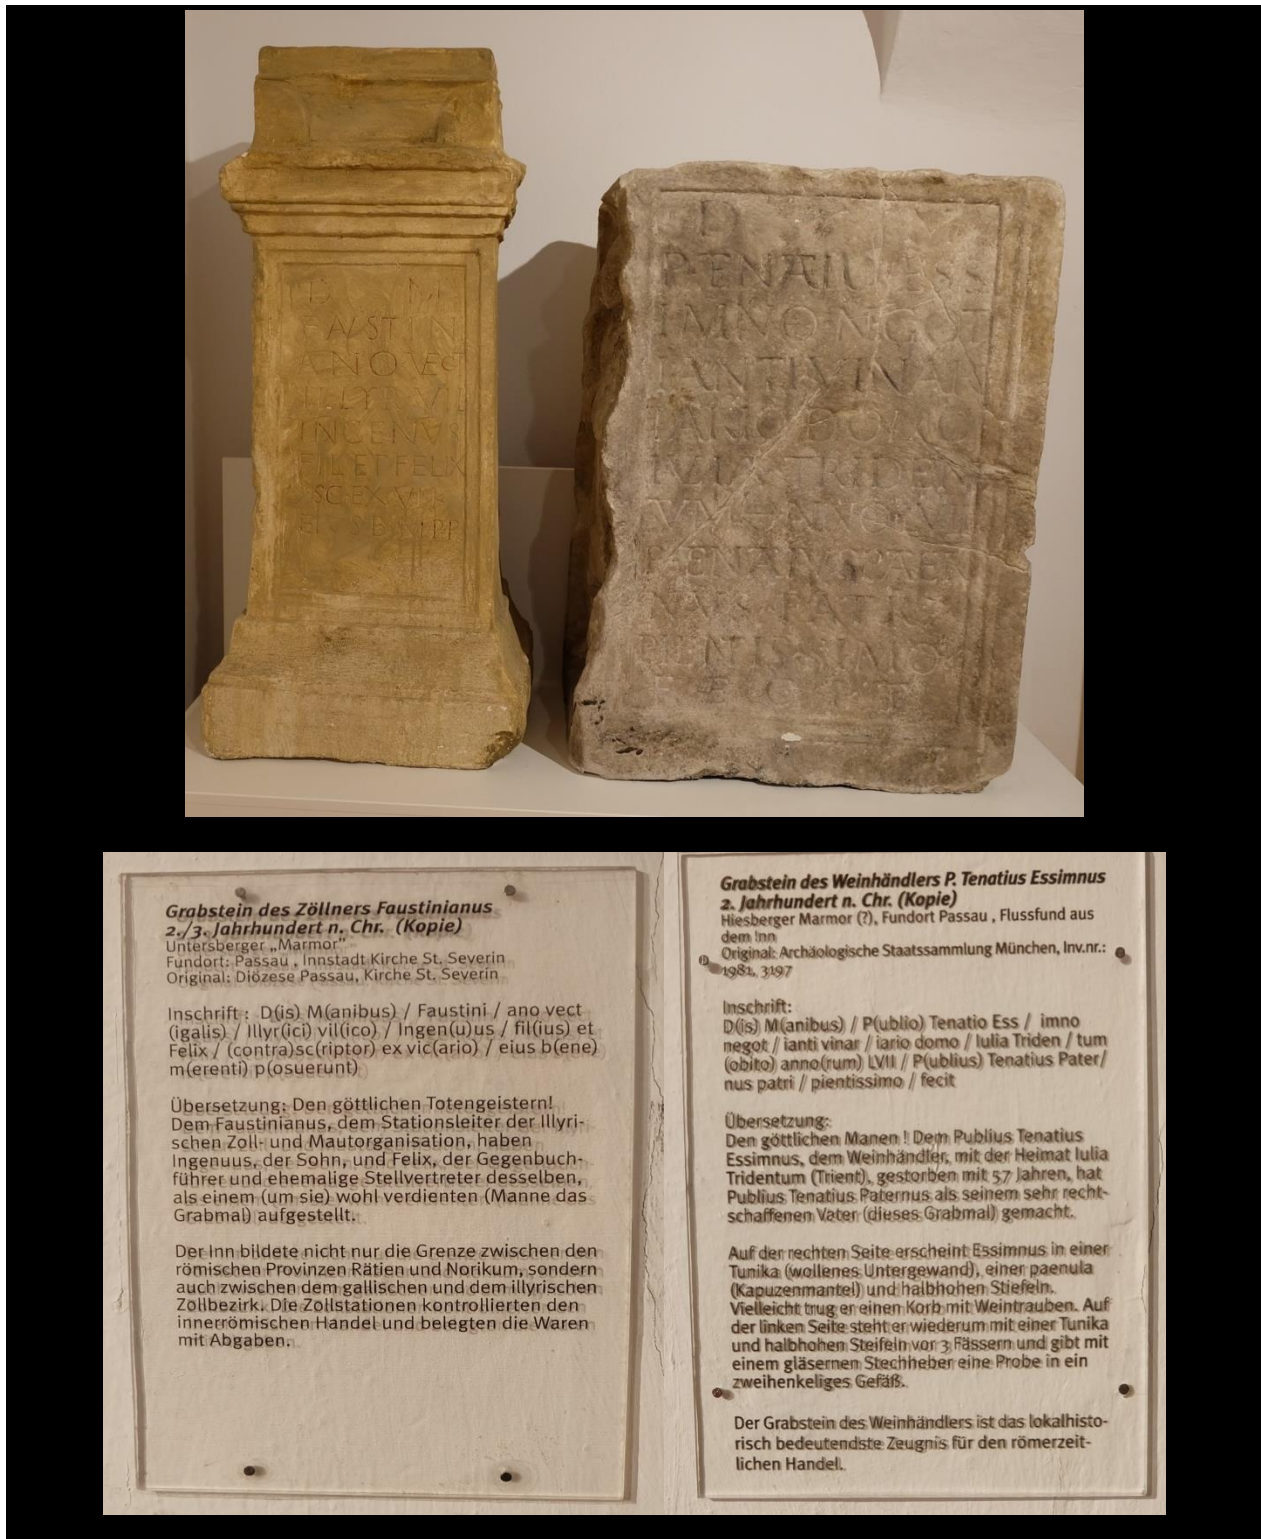 D M
FAVSTIN
ANO VECT
ILLYR VIL
INGENVS
FIL ET FELIX
SC EX VIK
EIVS B M P P
D
P TENATIO ESS
IMNO NGOT
IANTI VINAR
IARIO DOMO
IVLIA TRIDEN
TVM ANNO LVII
P TENATIVS PATER
NVS PATRI
PIENTISSIMO
FECIT
Grabstein des Zöllners Faustinianus
2./3. Jahrhundert n. Chr. (Kopie)
Untersberger „Marmor“
Fundort: Passau , Innstadt Kirche St. Severin
Original: Diözese Passau, Kirche St. Severin
Inschrift : D(is) M(anibus) / Faustini / ano vect
(igalis) / Illyr(ici) vil(ico) / Ingen(u)us / fil(ius) et
Felix / (contra)sc(riptor) ex vic(ario) / eius b(ene)
m(erenti) p(osuerunt)
Übersetzung: Den göttlichen Totengeistern!
Dem Faustinianus, dem Stationsleiter der Illyri-
schen Zoll- und Mautorganisation, haben
Ingenuus, der Sohn, und Felix, der Gegenbuch-
führer und ehemalige Stellvertreter desselben,
als einem (um sie) wohl verdienten (Manne das
Grabmal) aufgestellt.
Der Inn bildete nicht nur die Grenze zwischen den
römischen Provinzen Rätien und Norikum, sondern
auch zwischen dem gallischen und dem illyrischen
Zollbezirk. Die Zollstationen kontrollierten den
innerrömischen Handel und belegten die Waren
mit Abgaben.
Grabstein des Weinhändlers P. Tenatius Essimnus
2. Jahrhundert n. Chr. (Kopie)
Hiesberger Marmor (?), Fundort Passau , Flussfund aus
dem Inn
Original: Archäologische Staatssammlung München, Inv.nr.:
1981, 3197
Inschrift:
D(is) M(anibus) / P(ublio) Tenatio Ess / imno
negot / ianti vinar / iario domo / Iulia Triden / tum
(obito) anno(rum) LVII / P(ublius) Tenatius Pater/
nus patri / pientissimo / fecit
Übersetzung:
Den göttlichen Manen ! Dem Publius Tenatius
Essimnus, dem Weinhändler, mit der Heimat Iulia
Tridentum (Trient), gestorben mit 57 Jahren, hat
Publius Tenatius Paternus als seinem sehr recht-
schaffenen Vater (dieses Grabmal) gemacht.
Auf der rechten Seite erscheint Essimnus in einer
Tunika (wollenes Untergewand), einer paenula
(Kapuzenmantel) und halbhohen Stiefeln.
Vielleicht trug er einen Korb mit Weintrauben. Auf
der linken Seite steht er wiederum mit einer Tunika
und halbhohen Steifeln vor 3 Fässern und gibt mit
einem gläsernen Stechheber eine Probe in ein
zweihenkeliges Gefäß.
Der Grabstein des Weinhändlers ist das lokalhisto-
risch bedeutendste Zeugnis für den römerzeit-
lichen Handel.